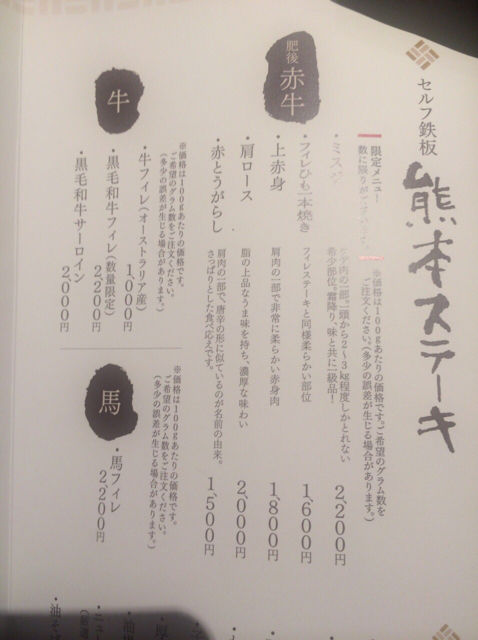 セルフ鉄板
熊本ステーキ
限定メニュー
数に限りが
※価格は100gあたりの価格です。ご希望のグラム数を
ご注文ください。(多少の誤差が生じる場合があります。)
肥後
赤牛
・ミスジ
肩肉の一部。一頭から2～3kg程度しかとれない
希少部位。霜降り、味と共に一級品!
2,200円
・フィレひも一本焼き
フィレステーキと同様柔らかい部位
1,600円
・上赤身
肩肉の一部で非常に柔らかい赤身肉
1,800円
・肩ロース
脂の上品なうま味を持ち、濃厚な味わい
2,000円
・赤とうがらし
肩肉の一部で、唐辛の形に似ているのが名前の由来。
さっぱりとした食べ応えです。
1,500円
牛
※価格は100gあたりの価格です。
ご希望のグラム数をご注文ください。
(多少の誤差が生じる場合があります。)
・牛フィレ(オーストラリア産)
1,000円
・黒毛和牛フィレ(数量限定)
2,200円
・黒毛和牛サーロイン
2,000円
馬
※価格は100gあたりの価格です。
ご希望のグラム数をご注文ください。
(多少の誤差が生じる場合があります。)
・馬フィレ
2,200円